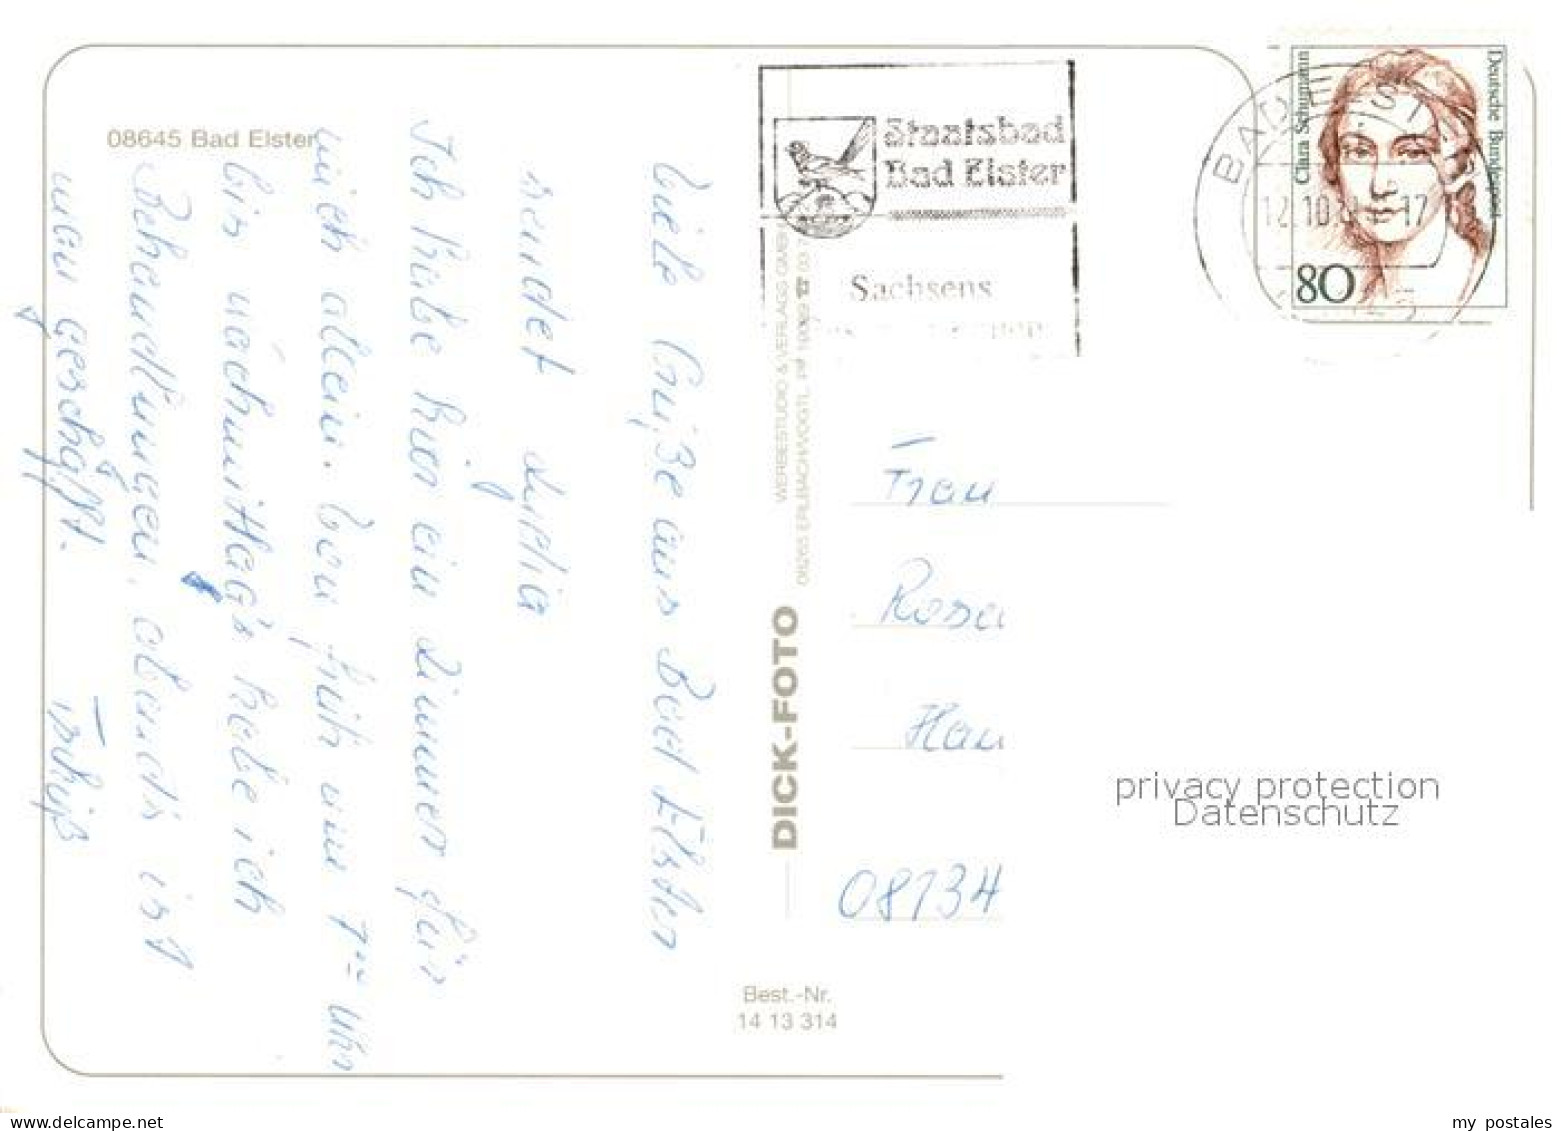 08645 Bad Elster
Viele Grüße aus Bad Elster
sendet Lydia
Ich habe hier ein Zimmer für
mich allein. Von früh um 7 00 Uhr
bis nachmittag's habe ich
Behandlungen, abends ist
man geschafft.
Tschüß
Staatsbad
Bad Elster
Sachsens
BAD ELSTER
12.10. 17
Deutsche Bundespost
Clara Schumann
80
WERBESTUDIO & VERLAGS GMBH
08265 ERLBACH/VOGTL. PF 10069 ☎ 03 7
DICK-FOTO
Frau
Rosa
Hau
08134
Best.-Nr.
14 13 314
privacy protection
Datenschutz
my postales